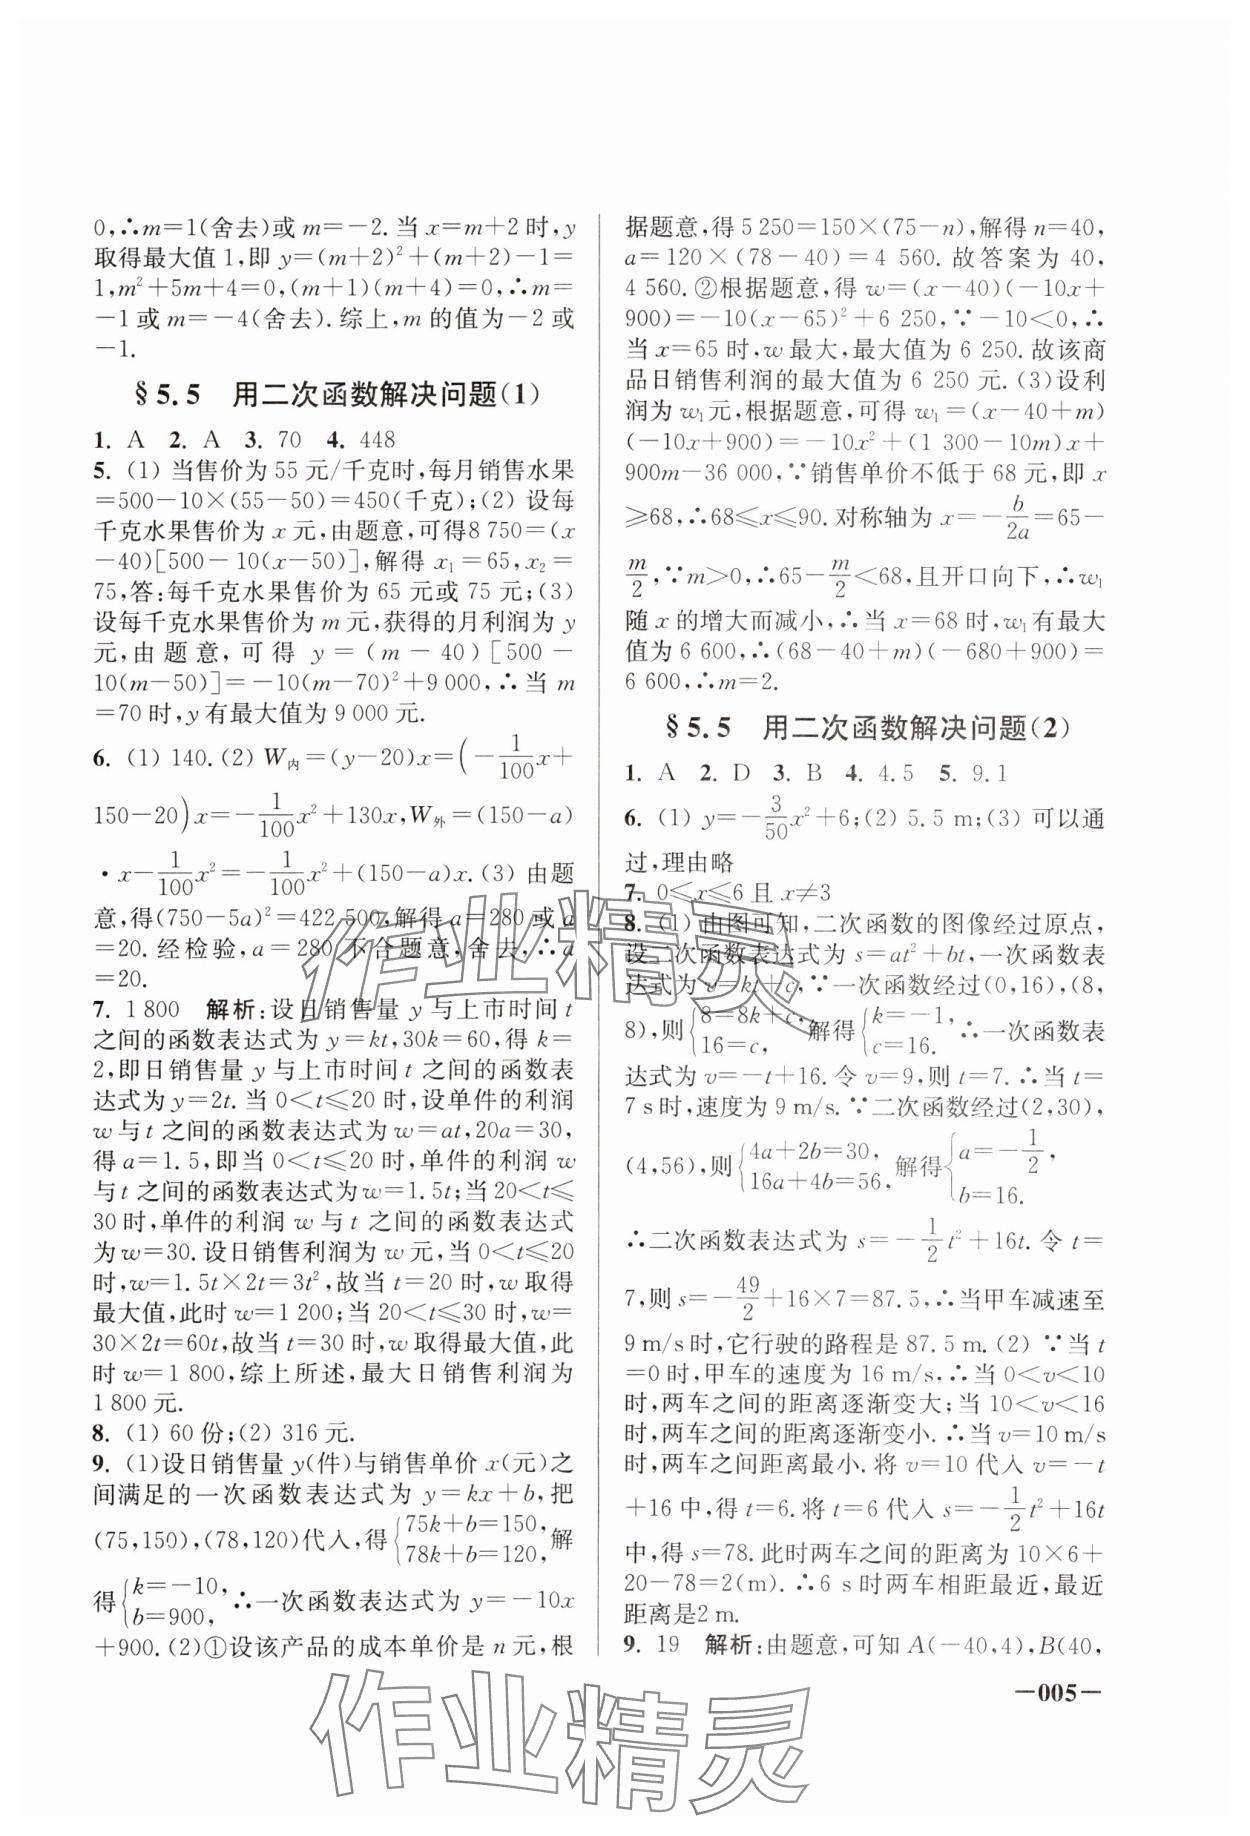 0,∴m=1(舍去)或 m=-2. 当 x=m+2 时,y
取得最大值 1,即 y=(m+2)²+(m+2)-1=
1,m²+5m+4=0,(m+1)(m+4)=0,∴m=
-1 或 m=-4(舍去). 综上,m 的值为-2 或
-1.
§5.5 用二次函数解决问题(1)
1. A 2. A 3. 70 4. 448
5. (1) 当售价为 55 元/千克时,每月销售水果
=500-10×(55-50)=450(千克);(2) 设每
千克水果售价为 x 元,由题意,可得8 750=(x
-40)[500-10(x-50)],解得 x₁=65,x₂=
75,答:每千克水果售价为 65 元或 75 元;(3)
设每千克水果售价为 m 元,获得的月利润为 y
元,由题意,可得 y=(m-40)[500-
10(m-50)]=-10(m-70)²+9 000,∴当 m
=70 时,y 有最大值为 9 000 元.
6. (1) 140. (2) W内=(y-20)x=(-1/100x+
150-20)x=-1/100x²+130x,W外=(150-a)
·x-1/100x²=-1/100x²+(150-a)x. (3) 由题
意,得(750-5a)²=422 500,解得 a=280 或 a
=20. 经检验,a=280 不合题意,舍去,∴a
=20.
7. 1 800 解析:设日销售量 y 与上市时间 t
之间的函数表达式为 y=kt,30k=60,得 k=
2,即日销售量 y 与上市时间 t 之间的函数表
达式为 y=2t. 当 0<t≤20 时,设单件的利润
w 与 t 之间的函数表达式为 w=at,20a=30,
得 a=1.5,即当 0<t≤20 时,单件的利润 w
与 t 之间的函数表达式为 w=1.5t;当 20<t≤
30 时,单件的利润 w 与 t 之间的函数表达式
为 w=30. 设日销售利润为 w 元,当 0<t≤20
时,w=1.5t×2t=3t²,故当 t=20 时,w 取得
最大值,此时 w=1 200;当 20<t≤30 时,w=
30×2t=60t,故当 t=30 时,w 取得最大值,此
时 w=1 800,综上所述,最大日销售利润为
1 800 元.
8. (1) 60 份;(2) 316 元.
9. (1)设日销售量 y(件)与销售单价 x(元)之
间满足的一次函数表达式为 y=kx+b,把
(75,150),(78,120)代入,得{75k+b=150, 78k+b=120,解
得{k=-10, b=900, ∴一次函数表达式为 y=-10x
+900. (2)①设该产品的成本单价是 n 元,根
据题意,得 5 250=150×(75-n),解得 n=40,
a=120×(78-40)=4 560. 故答案为 40,
4 560. ②根据题意,得 w=(x-40)(-10x+
900)=-10(x-65)²+6 250,∵-10<0,∴
当 x=65 时,w 最大,最大值为 6 250. 故该商
品日销售利润的最大值为 6 250 元. (3) 设利
润为 w₁元,根据题意,可得 w₁=(x-40+m)
(-10x+900)=-10x²+(1 300-10m)x+
900m-36 000,∵销售单价不低于 68 元,即 x
≥68,∴68≤x≤90. 对称轴为 x=-b/2a=65-
m/2,∵m>0,∴65-m/2<68,且开口向下,∴w₁
随 x 的增大而减小,∴当 x=68 时,w₁有最大
值为 6 600,∴(68-40+m)(-680+900)=
6 600,∴m=2.
§5.5 用二次函数解决问题(2)
1. A 2. D 3. B 4. 4.5 5. 9.1
6. (1) y=-3/50x²+6;(2) 5.5 m;(3) 可以通
过,理由略
7. 0<x≤6 且 x≠3
8. (1) 由图可知,二次函数的图像经过原点,
设二次函数表达式为 s=at²+bt,一次函数表
达式为 v=kt+c,∵一次函数经过(0,16),(8,
8),则{8=8k+c, 16=c, 解得{k=-1, c=16. ∴一次函数表
达式为 v=-t+16. 令 v=9,则 t=7. ∴当 t=
7 s 时,速度为 9 m/s. ∵二次函数经过(2,30),
(4,56),则{4a+2b=30, 16a+4b=56, 解得{a=-1/2, b=16.
∴二次函数表达式为 s=-1/2t²+16t. 令 t=
7,则 s=-49/2+16×7=87.5,∴当甲车减速至
9 m/s 时,它行驶的路程是 87.5 m. (2) ∵当 t
=0 时,甲车的速度为 16 m/s,∴当 0<v<10
时,两车之间的距离逐渐变大;当 10<v<16
时,两车之间的距离逐渐变小. ∴当 v=10 m/s
时,两车之间距离最小. 将 v=10 代入 v=-t
+16 中,得 t=6. 将 t=6 代入 s=-1/2t²+16t
中,得 s=78. 此时两车之间的距离为 10×6+
20-78=2(m). ∴6 s 时两车相距最近,最近
距离是2 m.
9. 19 解析:由题意,可知 A(-40,4),B(40,
—005—
作业精灵
作业精灵